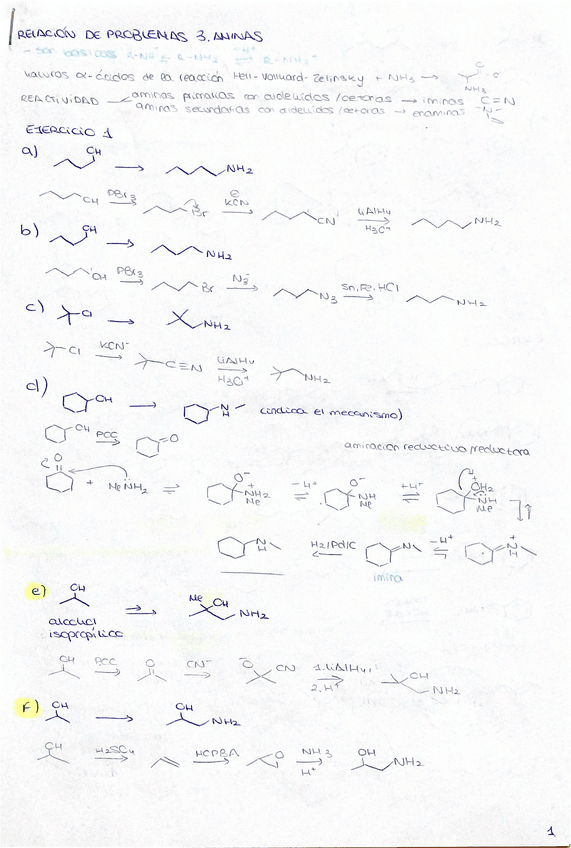 RELACIÓN DE PROBLEMAS 3. AMINAS
- son básicas R-NH⁻ ⇌ R-NH₂ ⇌ R-NH₃⁺
α-ácidos de la reacción Hell-Volhard-Zelinsky + NH₃ →
NH₃
REACTIVIDAD aminas primarias con aldehídos/cetonas → iminas C=N
aminas secundarias con aldehídos/cetonas → enaminas
EJERCICIO 1
a) OH → NH₂
OH PBr₃ → Br KCN → CN LiAlH₄ H₃O⁺ → NH₂
b) OH → NH₂
OH PBr₃ → Br N₃⁻ → N₃ Sn, Fe, HCl → NH₂
c) Cl → NH₂
Cl KCN⁻ → C≡N LiAlH₄ H₃O⁺ → NH₂
d) OH → N H (indica el mecanismo)
OH PCC → O
aminación reductiva/reductora
O + MeNH₂ ⇌ O⁻ NH₂⁺ Me -H⁺ ⇌ O⁻ NH Me +H⁺ ⇌ OH₂ NH Me
N H H₂/Pd/C ← N -H⁺ ⇌ N⁺ H
imina
e) OH ⇉ Me OH NH₂
alcohol
isopropílico
OH PCC → O CN⁻ → ⁻O CN 1. LiAlH₄ 2. H⁺ → OH NH₂
F) OH → OH NH₂
OH H₂SO₄ → MCPBA → O NH₃ H⁺ → OH NH₂
1